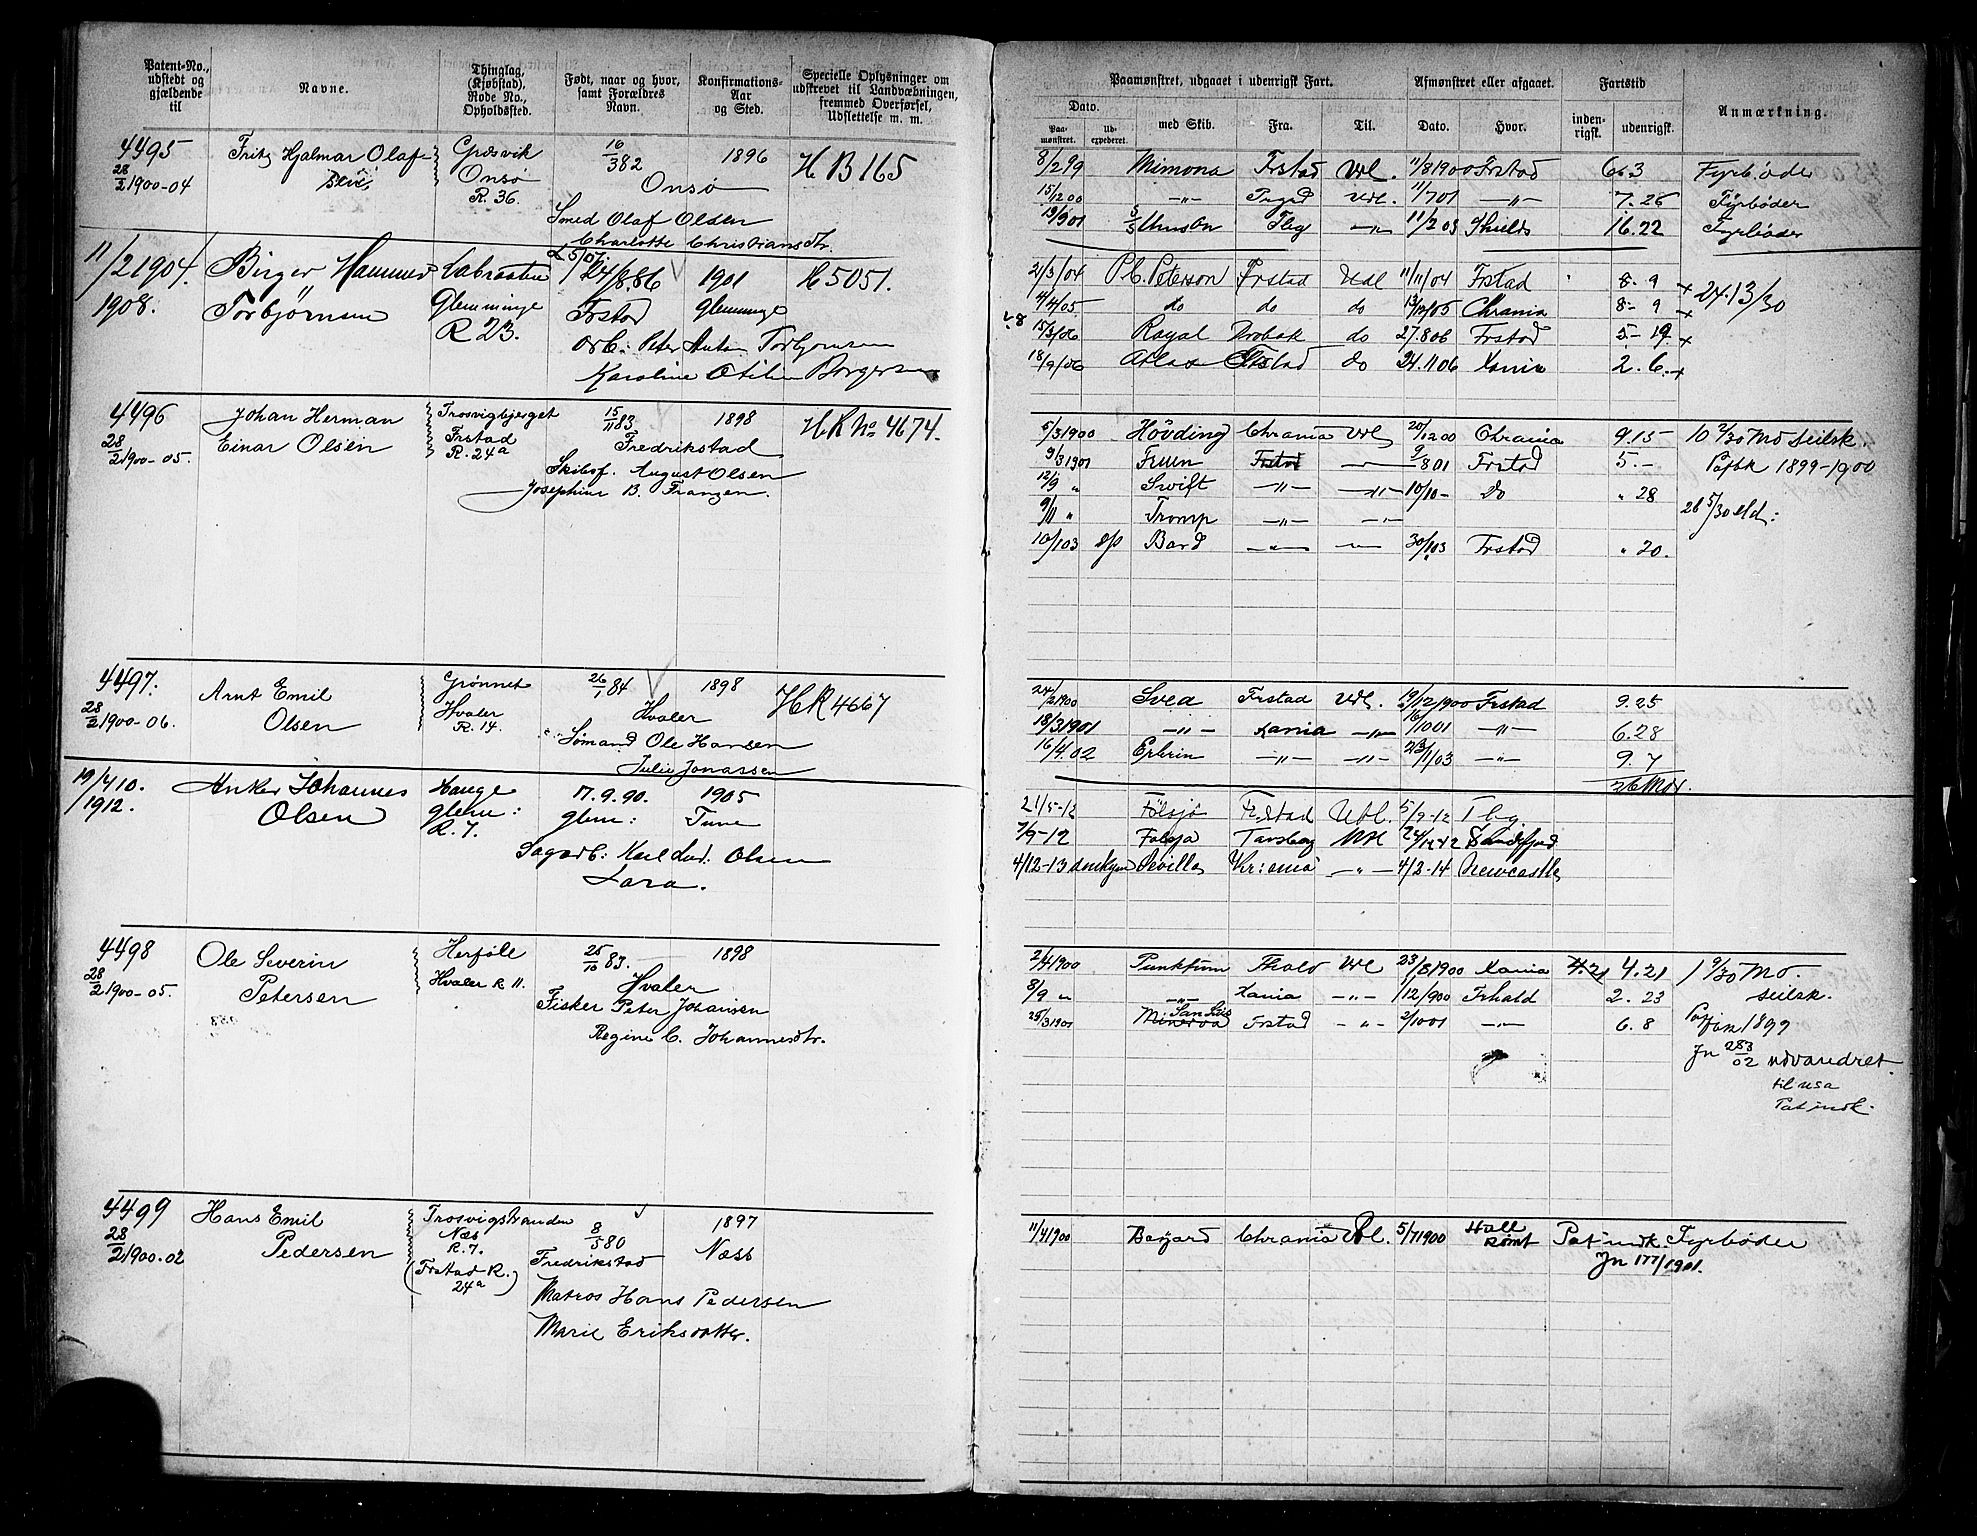 Patent-No., udstedt og gjældende til
Navne.
Thinglag, (Kjøbstad), Rode No., Opholdssted.
Født, naar og hvor, samt Forældres Navn.
Konfirmations-Aar og Sted.
Specielle Oplysninger om udskrevet til Landværningen, fremmed Overførsel, Udslettelse m. m.
Paamønstret, udgaaet i udenrigsk Fart.
Afmønstret eller afgaaet.
Fartstid
Anmærkning.
Dato.
Paamønstret.
Udexpederet.
med Skib.
Fra.
Til.
Dato.
Hvor.
indenrigsk.
udenrigsk.
4495 Fritz Hjalmar Olaf Gresvik 16/3 82 1896 H B 165
28/2 1900-04 Onsø Onsø
R. 36.
Smed Olaf Olsen
Charlotte Christiansdtr.
8/2 99 Mimona Frstad Udl. 11/8 1900 Frstad 6.3 Fyrbøder
15/12 00 -"- Udl. 11/7 01 -"- 7.26 Fyrbøder
19/9 01 Tbg -"- 11/2 03 Shields 16.22 Fyrbøder
11/2 1904. Birger Hannes Cabraaten 24/8.86 1901 H 5051.
1908. Torbjørnsen Glemminge Frstad Glemminge
R 23.
Arb: Peter Anton Torbjørnsen
Karoline Otilie Borgersen
2/3/04 P.C. Peterson Frstad Udl 11/11/04 Frstad 8-9 24.13/30
4/4/05 do do do 13/12/05 Chrania 8-9
15/3/06 Royal Drobak do 27.8 06 Frstad 5-19
18/9/06 Atlas Frstad do 24.11 06 Xania 2.6.
4496 Johan Herman Trosvigbjerget 15/11 83 1898 H R No 4674.
28/2 1900-05. Einar Olsen Frstad Fredrikstad
R. 24a
Skibsf. August Olsen
Josephine B. Franzen.
5/3 1900 Hövding Chrania Udl 20/12 00 Chrania 9.15 10 2/30 Mo Seilsk.
9/3 1901 Fruen Frstad 9/8 01 Frstad 5.- 1899-1900
12/9 " Swift -"- -"- 10/10 - Do " 28
9/11 " Tromp -"- -"- 26 5/30 Md:
10/1 03 Bard -"- -"- 30/1 03 Frstad " 20.
4497. Arnt Emil Grønnet 26/1 84 1898 H R 4667
28/2 1900-06. Olsen Hvaler Hvaler
R. 14.
Sømand Ole Hansen
Julie Jonassen
24/2 1900 Svea Frstad Udl. 19/12 1900 Frstad 9.25
18/3 1901 -"- Xania -"- 16/10 01 -"- 6.28
16/4.02 -"- -"- 23/1/03 -"- 9.7
26 Md.
19/4 10. Anker Johannes Hauge 17.9.90. 1905
/1912. Olsen glem: glem: Tune
R. 7.
Sagarb: Karl Lud: Olsen
Lara.
21/5-12 Fölsjö Frstad Udl. 5/9-12 Tbg.
7/9-12 Folsjø Tønsberg Udl 24/12 12 Sandefjord
4/12-13 Sevilla Kr:ania -"- 4/2-14 Newcastle
4498 Ole Severin Herføle 25/10 83. 1898
28/2 1900-05. Petersen Hvaler R 11. Hvaler
Fisker Peter Johansen
Regine C. Johannesdtr.
2/4 1900 Punktum Fhald Udl 23/8 1900 Xania 4.21 4.21 1 9/30 Mo.
8/9 " -"- Xania -"- 1/12/900 Frhald 2.23 seilsk.
25/3 1901 Minerva San Luis Frstad -"- 2/10 01 -"- 6.8 1899
Jn 283/02 udvandret.
til usa
Pat indk.
4499 Hans Emil Trosvigstranden 8/5 80 1897
28/2 1900-02 Pedersen Næs Fredrikstad Næss
R. 7.
(Frstad R. 24a)
Matros Hans Pedersen
Marie Eriksdatter.
11/4 1900 Bayard Chrania Udl. 5/7 1900 Hull Rømt Pat: indk. Fyrbøder
Jn 177/1901.